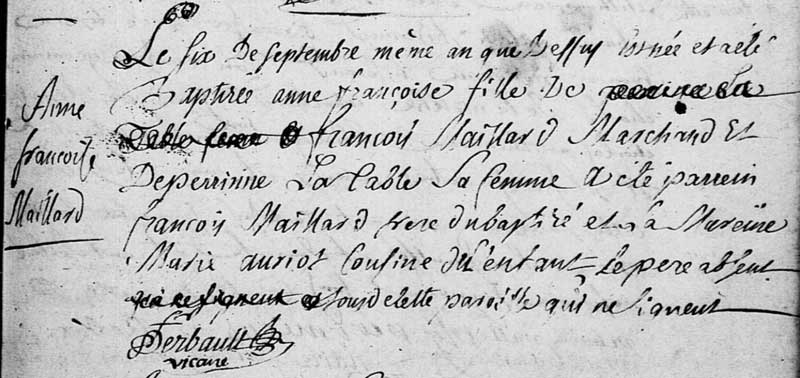 Le six De septembre même an que Dessus est née et a été
Baptisée anne françoise fille De perrine La
Anne
françoise
Maillard
Table feme François Maillard Marchand Et
De perrinne La table Sa femme A eté parrein
françois Maillard frere du baptisé et La Mareine
Marie auriot Cousine de L'enfant Le pere absent
qui ne signent tous de cette paroisse qui ne signent
Ferbault
vicaire